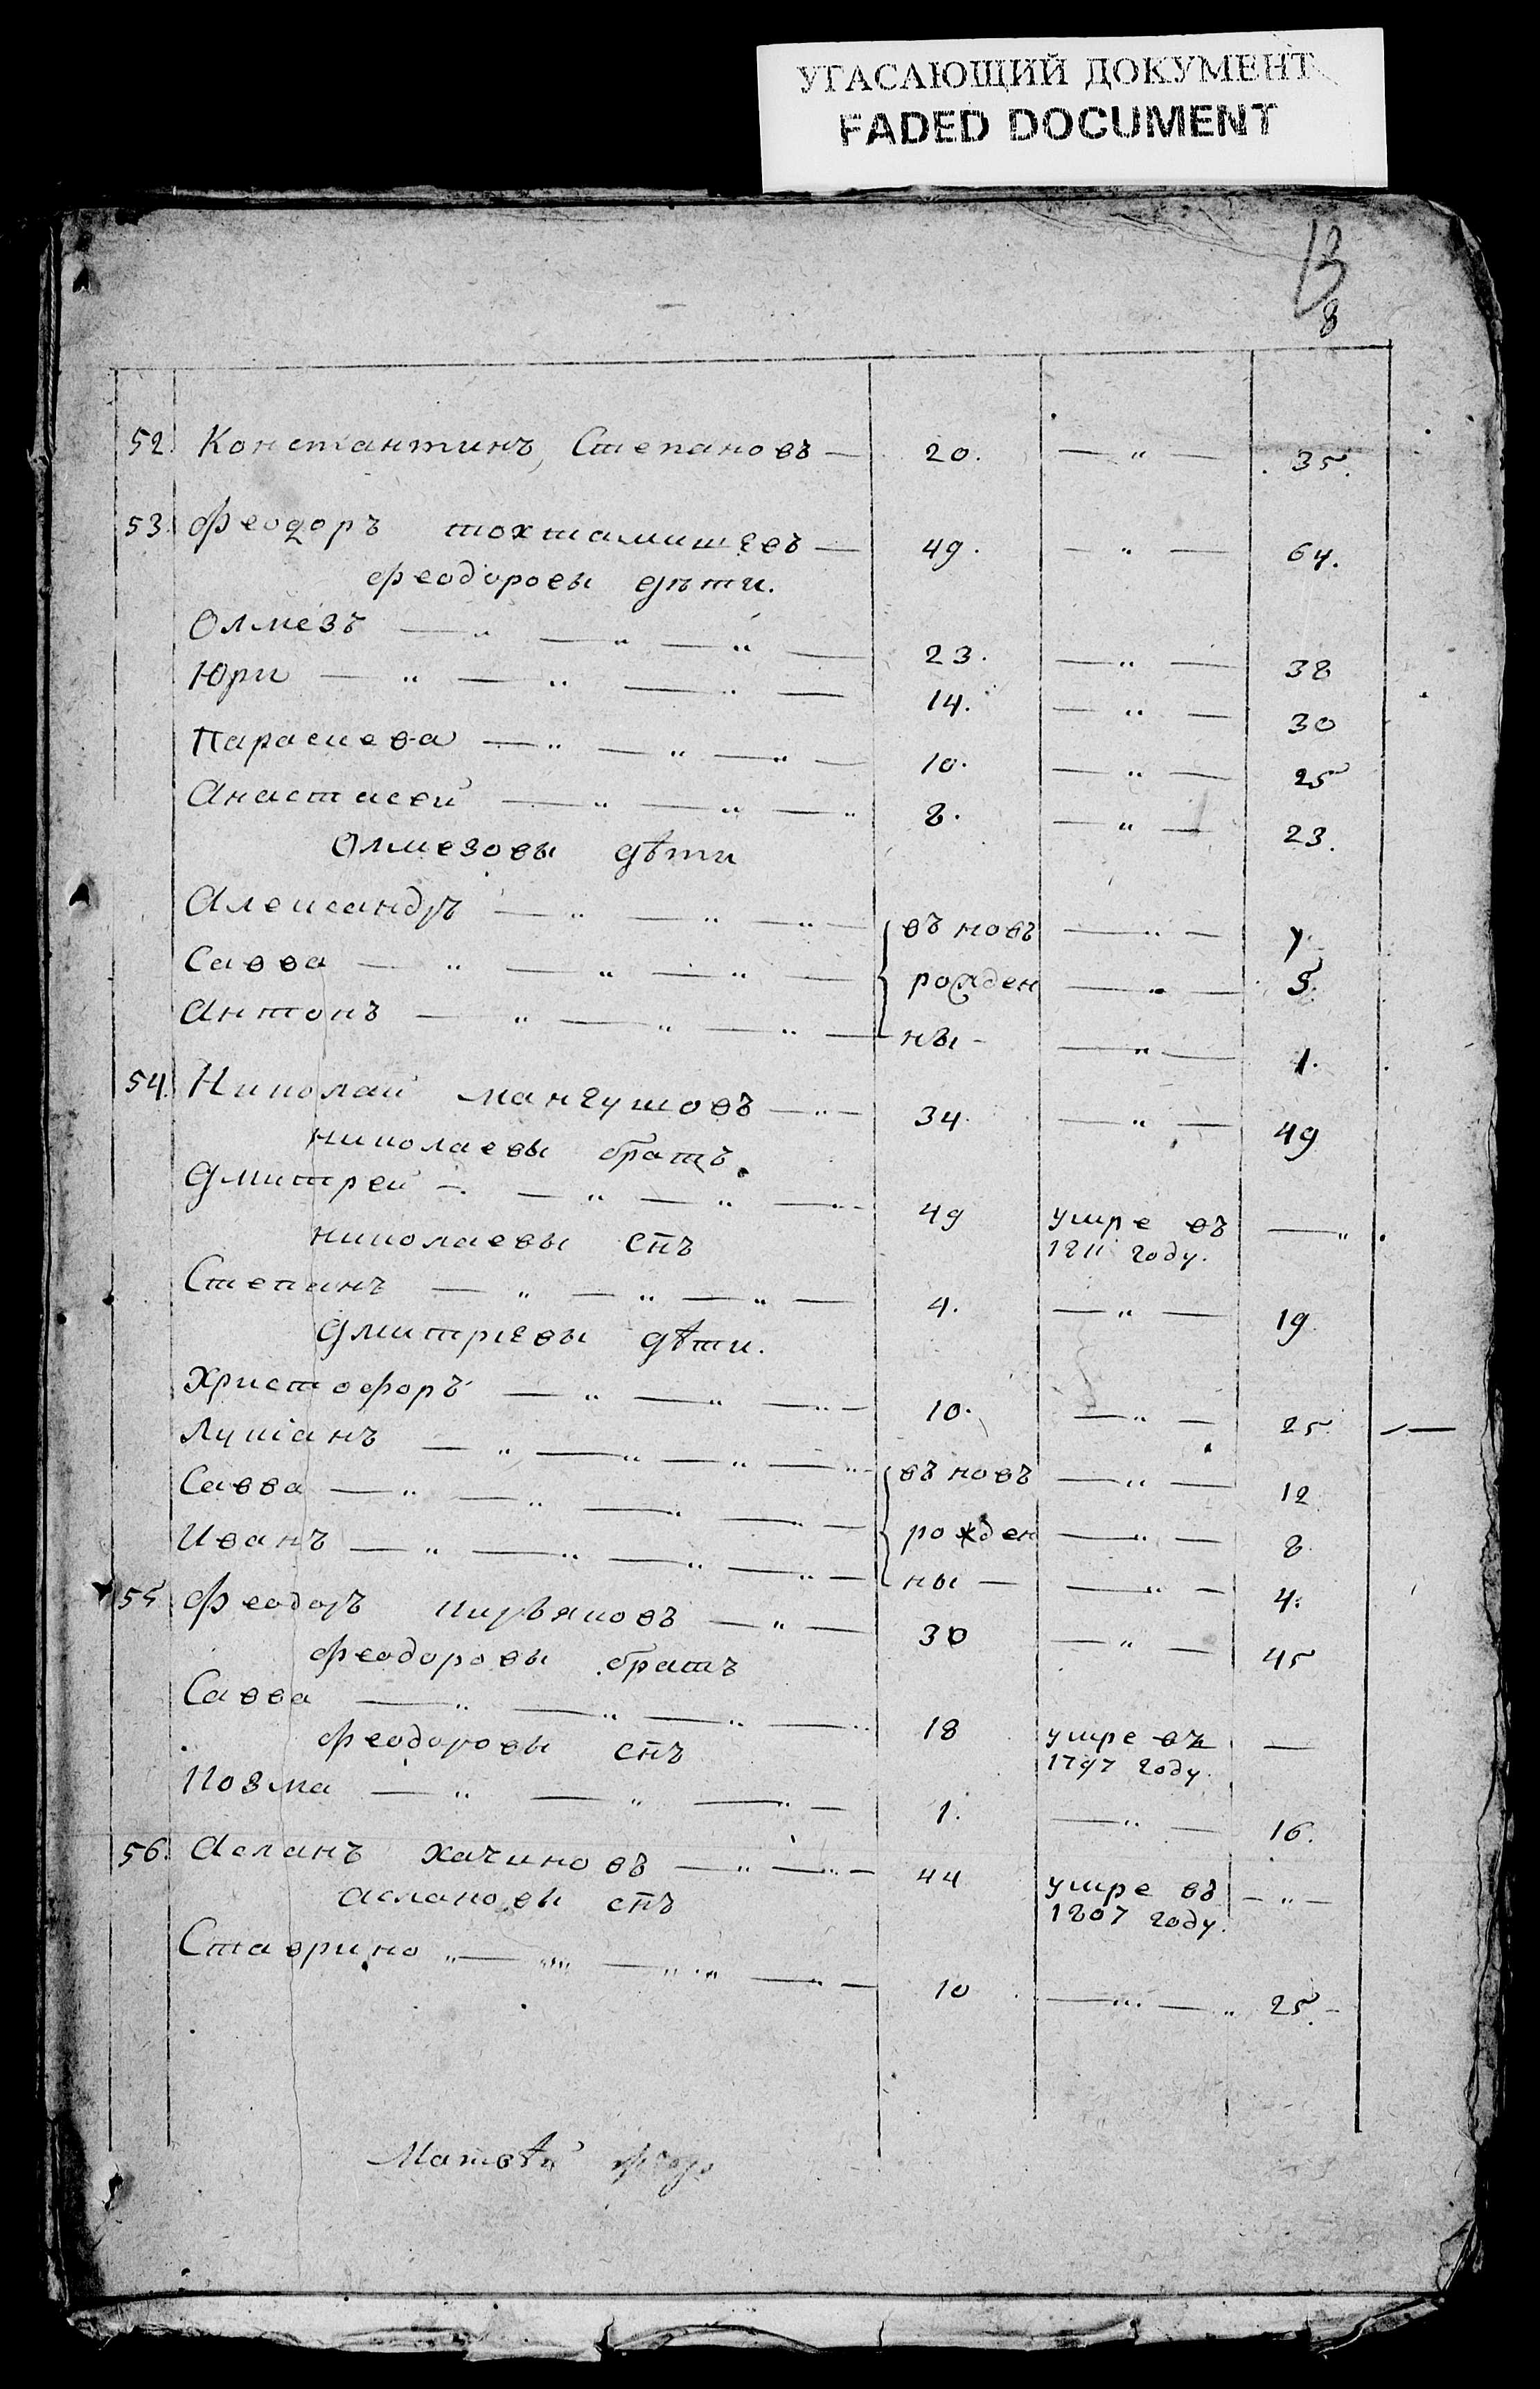 УГАСАЮЩИЙ ДОКУМЕНТ
FADED DOCUMENT
13
8
52. Константинъ, Степановъ — 20. — " — 35.
53. Феодоръ тохтамишевъ — 49. — " — 64.
Феодоровы дѣти.
Олмезъ — " — " — " — 23. — " — 38
Юри — " — " — " — 14. — " — 30
Параскева — " — " — " — 10. — " — 25
Анастасей — " — " — " 8. — " — 23.
Олмезовы дѣти
Александръ — " — " — " — въ новъ — " — 7.
Савва — " — " — " — рожден — " — 5.
Антонъ — " — " — " — ны — — " — 1.
54. Николай мангушовъ — " — 34. — " — 49
николаевы братъ.
Дмитрей — . — " — " — " — 49 умре въ 1811 году. — "
николаевы снъ
Степанъ — " — " — " — 4. — " — 19.
Дмитріевы дѣти.
Христофоръ — " — " — " — 10. — " — 25.
Лукіанъ — " — " — " — " — въ новъ — " — 12
Савва — " — " — " — " — рожден — " — 8
Иванъ — " — " — " — " — ны — — " — 4.
55 Феодоръ кирьяковъ — " — 30 — " — 45
Феодоровы братъ
Савва — " — " — " — " 18 умре въ 1797 году. —
Феодоровы снъ
Козма — " — " — " — 1. — " — 16.
56. Асланъ хачиновъ — " — " — 44 умре въ 1807 году. — " —
аслановы снъ
Ставрино " — "" — " " — " — 10 — " — " 25. —
Матвѣй